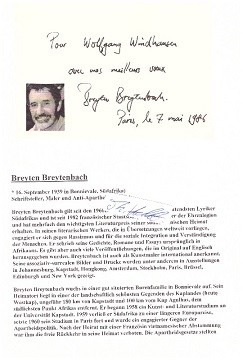 Pour Wolfgang Windhausen
avec mes meilleurs vœux
Breyten Breytenbach.
Paris, le 7 mai 1986
Breyten Breytenbach
* 16. September 1939 in Bonnievale, Südafrika;
Schriftsteller, Maler und Anti-Aparthe
Breyten Breytenbach gilt seit den 1960 bedeutendsten Lyriker
Südafrikas und ist seit 1982 französischer Staats der Ehrenlegion
und hat mehrfach den wichtigsten Literaturpreis seiner Heimat
erhalten. In seinen literarischen Werken, die in Übersetzungen weltweit vorliegen,
engagiert er sich gegen Rassismus und für die soziale Integration und Verständigung
der Menschen. Er schrieb seine Gedichte, Romane und Essays ursprünglich in
Afrikaans. Es gibt aber auch viele Veröffentlichungen, die im Original auf Englisch
herausgegeben wurden. Breytenbach ist auch als Kunstmaler international anerkannt.
Seine assoziativ-surrealen Bilder und Drucke werden unter anderem in Ausstellungen
in Johannesburg, Kapstadt, Hongkong, Amsterdam, Stockholm, Paris, Brüssel,
Edinburgh und New York gezeigt.
Breyten Breytenbach wuchs in einer gut situierten Borenfamilie in Bonnievale auf. Sein
Heimatort liegt in einer der landschaftlich schönsten Gegenden des Kaplandes (heute
Westkap), ungefähr 180 km von Kapstadt und 100 km vom Kap Agulhas, dem
südlichsten Punkt Afrikas entfernt. Er begann 1958 ein Kunst- und Literaturstudium an der
Universität Kapstadt. 1959 verließ er Südafrika zu einer längeren Europareise,
setzte 1960 sein Studium in Paris fort und wurde ein engagierter Gegner der
Apartheidspolitik. Nach der Heirat mit einer Französin vietnamesischer Abstammung
war ihm die freie Rückkehr in seine Heimat verboten. Die Apartheidspolitik stellte